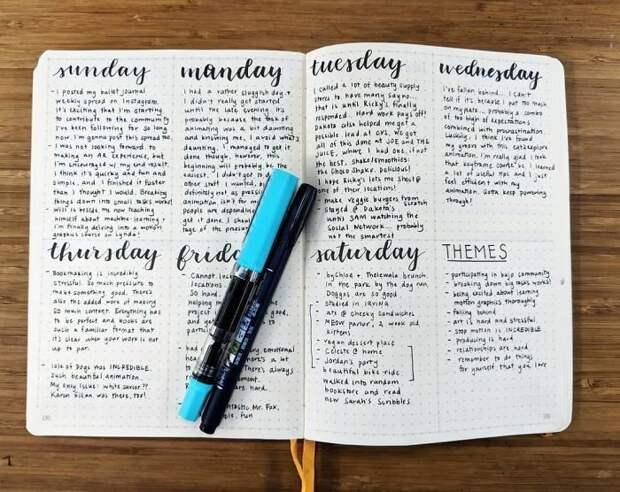 sunday
- I posted my bullet journal
weekly spread on Instagram.
It's exciting that I'm starting
to contribute to the community
I've been following for so long
now. I'm gonna post this spread too.
- I was not looking forward to
making my AR experience, but
I'm encouraged w/ my end result.
I think it's quirky and fun and
simple, and I finished it faster
than I thought I would. Breaking
things down into small tasks works!
- Will is beside me now teaching
himself about machine learning +
I'm finally diving into a motion
graphics course on Lynda!
monday
I had a rather sluggish day. +
I didn't really get started
until the late evening. It's
probably because the task of
animating was a bit daunting
and knowing me, I avoid what's
daunting. I managed to get it
done though, however, this
beginning will probably be the
easiest. I didn't get to do
other stuff I wanted,
definitely not as
animation isn't for
people are depending
get it done. I should
tags of the present
tuesday
I called a lot of beauty supply
stores to have many say no...
that is until Ricky's finally
responded. Hard work pays off!
Dakota also helped me get a
possible lead at CVS. We got
all of this done at JOE AND THE
JUICE, where I had one, if not
the best, shake/smoothies:
the Choco Shake. Delicious!
I hope Ricky's lets me shoot @
one of their locations!
- make veggie burgers from scratch
- stayed @ Dakota's
until 3AM watching the
Social Network... probably
not the smartest
wednesday
I've fallen behind... I can't
tell if it's because I put too much
on my plate... probably a combo
of too high of expectations
combined with procrastination.
Luckily, I think I've found
my groove with this exterior
animation. I'm really glad I took
that keyframe course bc I learned
a lot of useful tips and I just
feel efficient with my
animation. Gotta keep powering
through!
thursday
- Bookmaking is incredibly
stressful. So much pressure to
make something good. There's
also the added work of making
so much content. Everything has
to be perfect and books are
such a familiar format that
it's clear when your work is not
up to par.
- Isle of Dogs was INCREDIBLE.
Such beautiful animation.
My only issue: white savior??
Karen Gillan was there, too!
friday
- Cannot
locations
So hard.
helping
project
good,
to
- had
emotional
there's a lot
always
are hard.
Fantastic Mr. Fox,
fun
saturday
- byChloe + Thelewala brunch
in the park by the dog run
Doggos are so good
- studied in IRVING
- ate @ cheeky Sandwiches
- MEOW parlor, 2 week old
kittens
- vegan dessert place
- Celeste @ home
- Jordan's party
- beautiful bike ride
- walked into random
bookstore and read
new Sarah's Scribbles
THEMES
- participating in bujo community
- breaking down big tasks works!
- being excited about learning
motion graphics thoroughly
- falling behind
- art is hard and stressful
- stop motion is INCREDIBLE
- producing is hard
- relationships are hard
- remember to do things
for yourself that you love